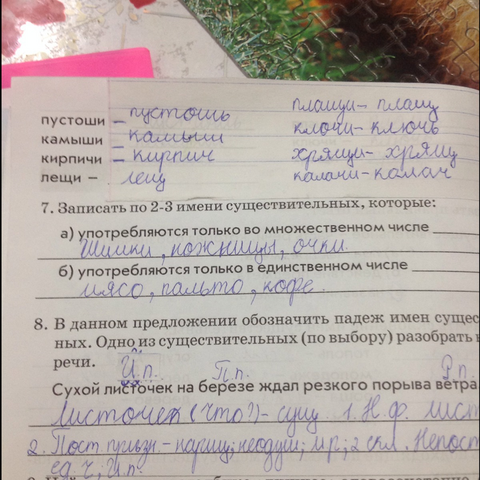 пустоши – пустошь плащи – плащ
камыши – камыш ключи – ключь
кирпичи – кирпич хрящи – хрящ
лещи – лещ калачи – калач
7. Записать по 2-3 имени существительных, которые:
а) употребляются только во множественном числе
ножницы, очки
б) употребляются только в единственном числе
мясо, пальто, кофе.
8. В данном предложении обозначить падеж имен сущес
ных. Одно из существительных (по выбору) разобрать
речи.
И.п. П.п. Р.п.
Сухой листочек на березе ждал резкого порыва ветра
Листочек (что?) – сущ. 1. Н.ф. лист
2. Пост. призн. – нариц; неодуш; м.р; 2 скл. Непост
ед.ч; И.п.